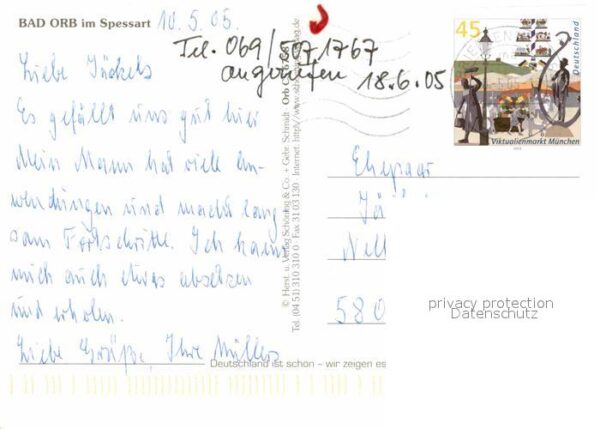 BAD ORB im Spessart
10.5.05.
Tel. 069/5071767
angerufen 18.6.05
Liebe Jäckels
Es gefällt uns gut hier
Mein Mann hat viele An-
wendungen und macht lang
sam Fortschritte. Ich kann
mich auch etwas absetzen
und erholen.
Liebe Grüße, Ihre Müllers
© Herst. u. Verlag Schöning & Co. + Gebr. Schmidt
Tel. (04 51) 310 310 0 · Fax 31 03 130
45
Deutschland
Viktualienmarkt München
Ehepaar
Jä
Nell
580
privacy protection
Datenschutz
Deutschland ist schön - wir zeigen es